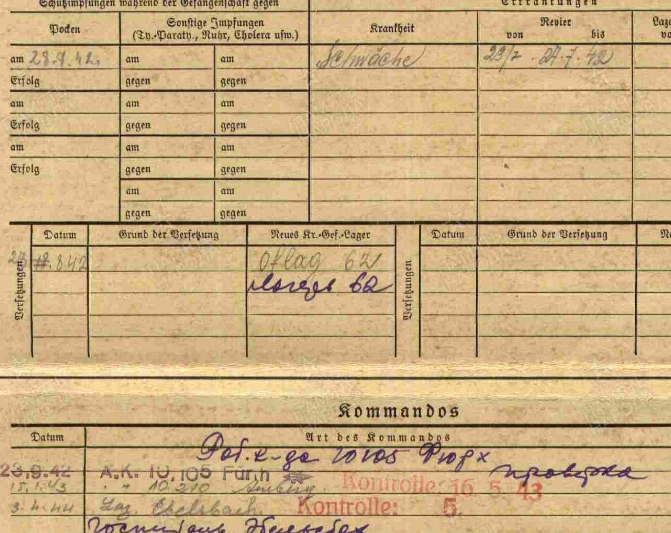 Schutzimpfungen während der Gefangenschaft gegen Erkrankungen
Pocken Sonstige Impfungen Krankheit Revier
(Ty.-Paraty., Ruhr, Cholera usw.) von bis
am 28.9.42. am am Schwäche 23/7 - 27.7.42
Erfolg gegen gegen
am am am
Erfolg gegen gegen
am am am
Erfolg gegen gegen
am am
gegen gegen
Datum Grund der Versetzung Neues Kr.-Gef.-Lager Datum Grund der Versetzung
Versetzungen Oflag 62 Versetzungen
лагерь 62
Kommandos
Datum Art des Kommandos
Раб. к-да 10105 Фюрх
23.9.42 A.K. 10,105 Fürth проверка
10 210 Kontrolle 16. 5. 43
3.4.44 Laz. Ebelsbach Kontrolle: 5.
Госпиталь Эбельсбах